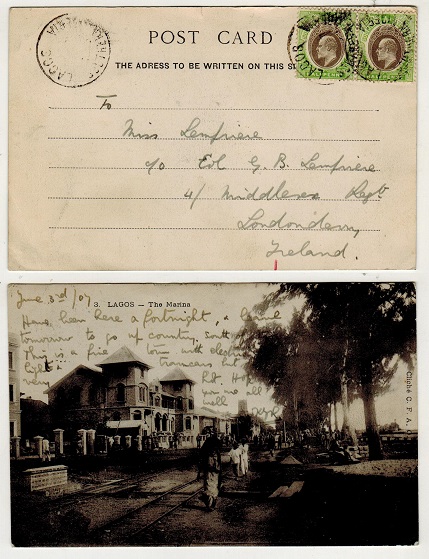 POST CARD
THE ADRESS TO BE WRITTEN ON THIS SI
LAGOS
LAGOS
To
Miss Lempriere
c/o Col G. B. Lempriere
4/ Middlesex Regt
Londonderry
Ireland.
June 3rd/07
3. LAGOS — The Marina
Have been here a fortnight, & leave
tomorrow to go up country,
This is a fine town with electric
light
very Hope
you are all
well
Cliché C. F. A. O.